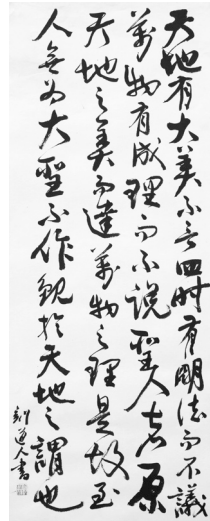 天地有大美不言四時有明法而不議
萬物有成理而不說聖人者原
天地之美而達萬物之理是故至
人無為大聖不作觀於天地之謂也
道人書